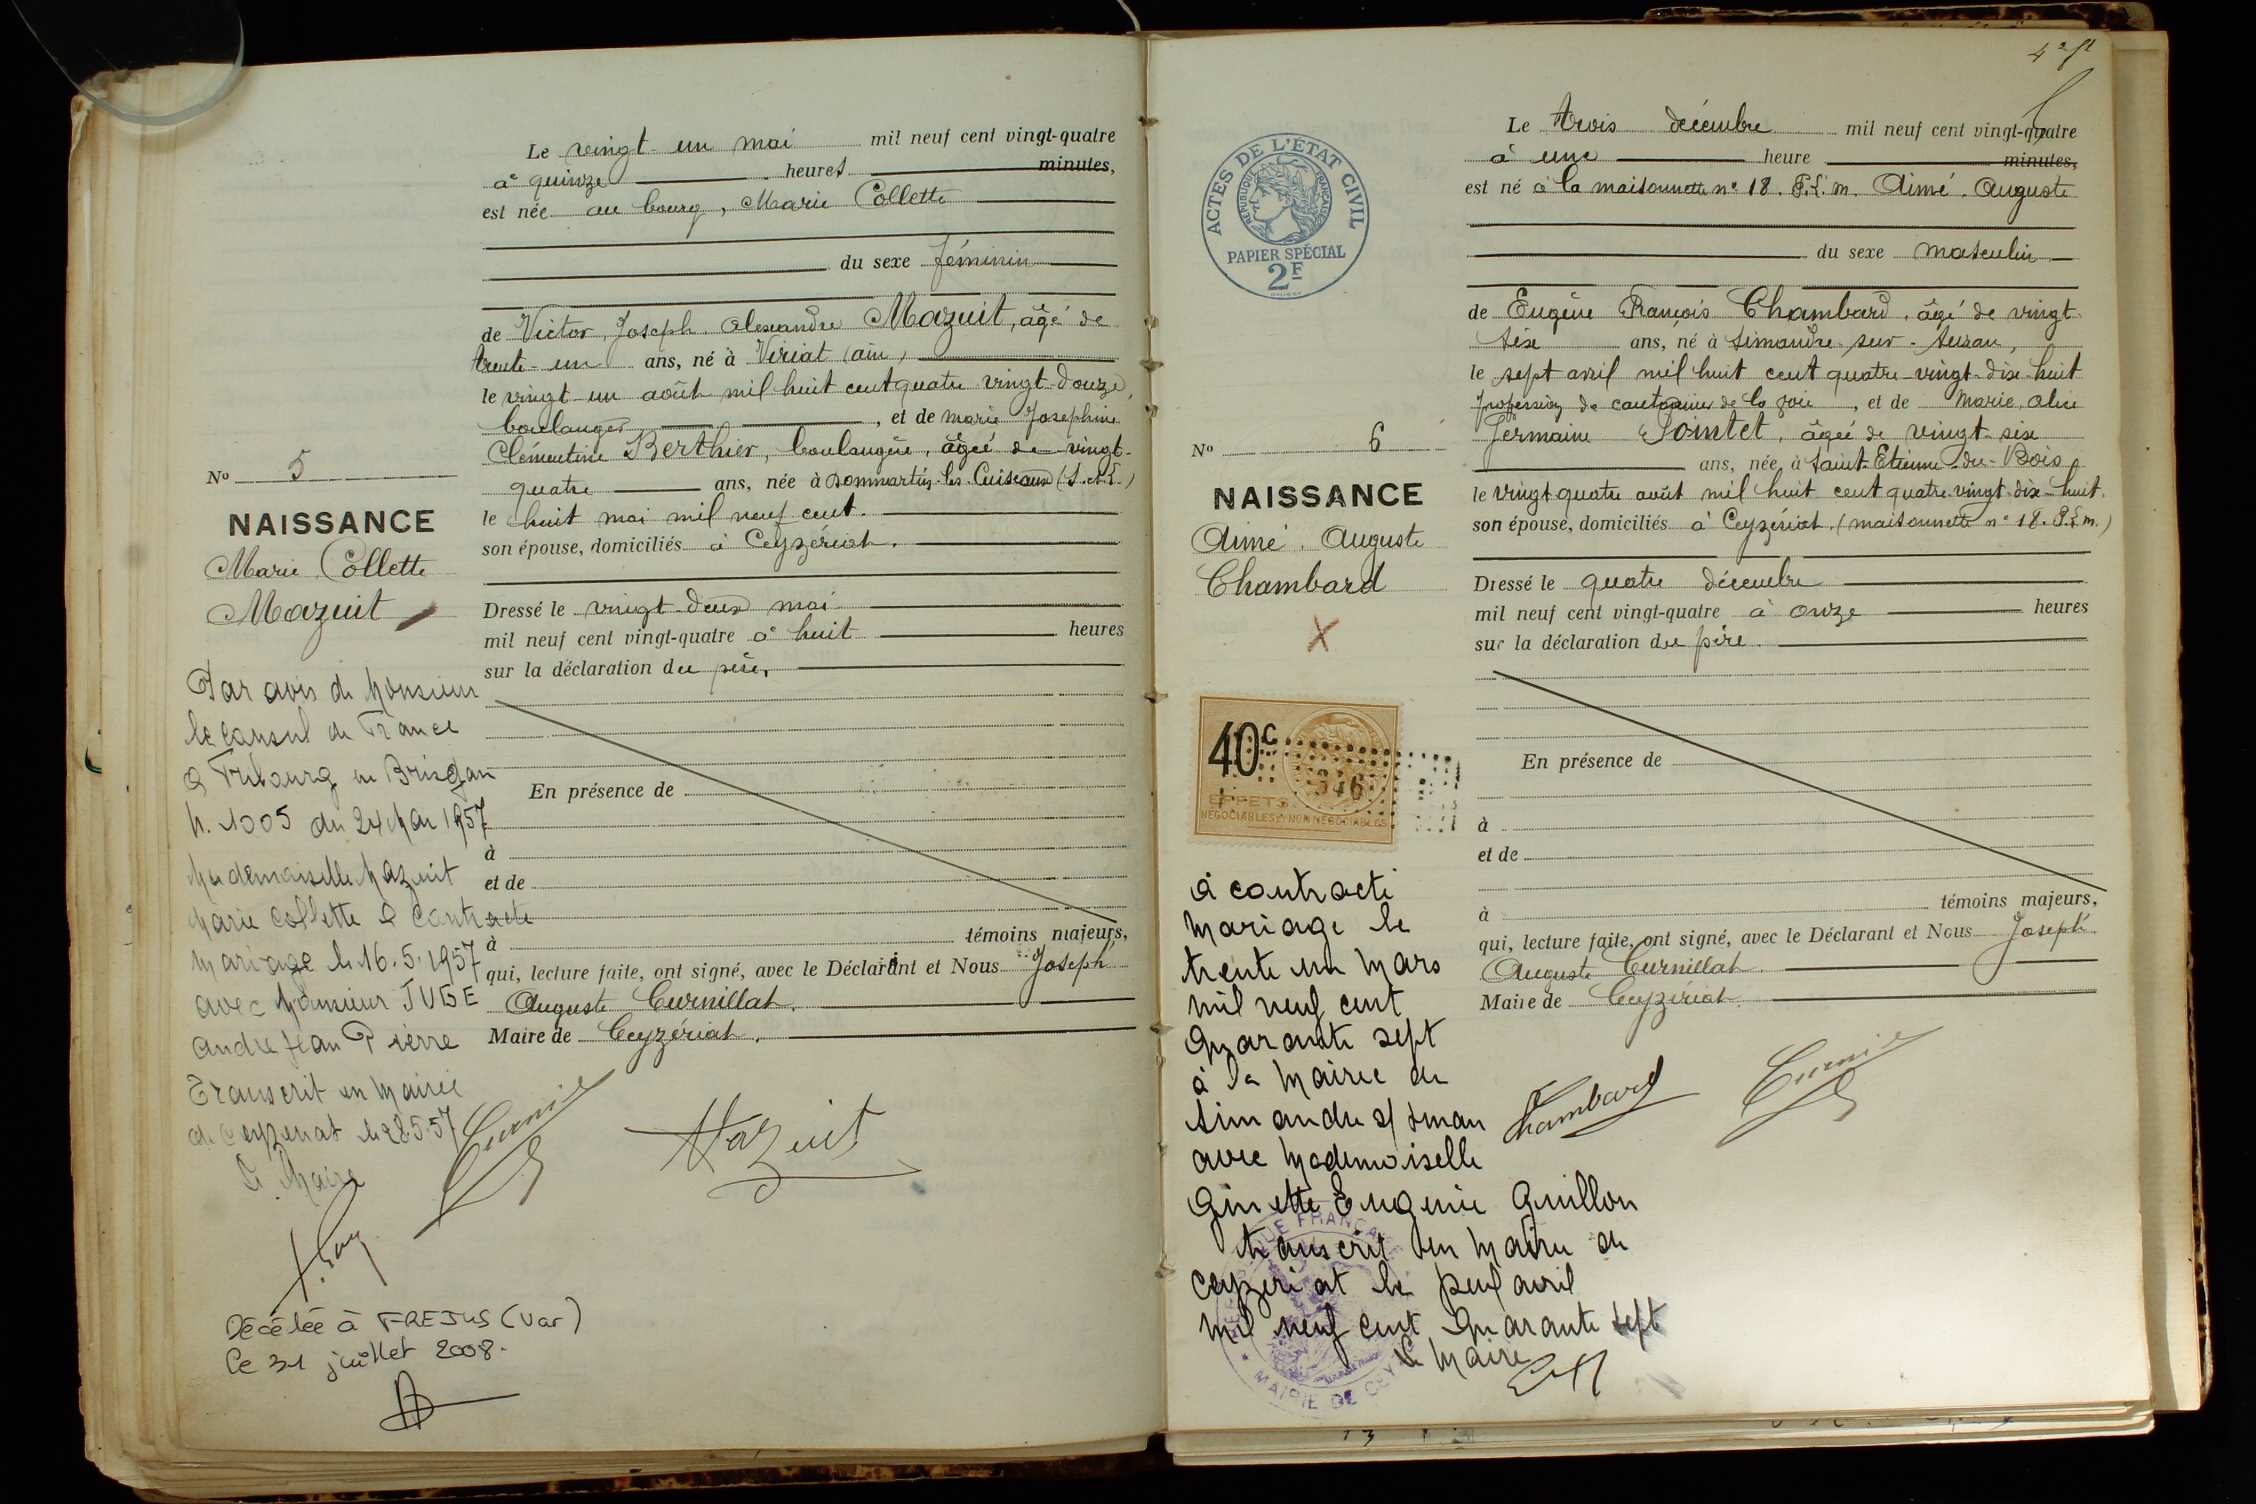 Le vingt-un mai mil neuf cent vingt-quatre
à quinze heures minutes,
est née au bourg, Marie Collette
du sexe féminin
de Victor Joseph Alexandre Mazuit, âgé de
trente-un ans, né à Viriat (ain)
le vingt-un août mil huit cent quatre vingt-douze,
boulanger, et de marie Josephine
Clémentine Berthier, boulangère, âgée de vingt-
quatre ans, née à Dommartin-les-Cuiseaux (S.-et-L.)
le huit mai mil neuf cent.
son épouse, domiciliés à Ceyzériat.
Dressé le vingt-deux mai
mil neuf cent vingt-quatre à huit heures
sur la déclaration du père.
En présence de
à
et de
à témoins majeurs,
qui, lecture faite, ont signé, avec le Déclarant et Nous Joseph
Auguste Curnillat.
Maire de Ceyzériat.
Mazuit
No 5
NAISSANCE
Marie Collette
Mazuit
Par avis de Monsieur
le Consul de France
à Fribourg en Brisgau
N. 1005 du 24 Mai 1957
Mademoiselle Mazuit
Marie Collette a contracté
Mariage le 16.5.1957
avec Monsieur JUGE
André Jean Pierre
Transcrit en Mairie
de Ceyzeriat le 28.5.57
Le Maire
Décédée à FREJUS (Var)
Le 31 juillet 2008.
ACTES DE L'ETAT CIVIL
REPUBLIQUE FRANÇAISE
PAPIER SPÉCIAL
2F
No 6
NAISSANCE
Aimé Auguste
Chambard
X
40c
346
EFFETS
NÉGOCIABLES & NON NÉGOCIABLES
à contracté
Mariage le
trente un Mars
mil neuf cent
quarante sept
à la Mairie de
Simandre s/ Suran
avec Mademoiselle
Ginette Eugenie Guillon
transcrit en Mairie de
Ceyzeriat le neuf avril
mil neuf cent quarante sept
Le Maire
MAIRIE DE CEY
Le trois décembre mil neuf cent vingt-quatre
à une heure minutes,
est né à la maisonnette n° 18. P.L.m. Aimé Auguste
du sexe masculin
de Eugène François Chambard, âgé de vingt-
six ans, né à Simandre-sur-Suran,
le sept avril mil huit cent quatre-vingt-dix-huit
profession de cantonnier de la voie, et de Marie Alice
Germaine Pointet, âgée de vingt-six
ans, née à Saint-Etienne-du-Bois
le vingt-quatre août mil huit cent quatre-vingt-dix-huit.
son épouse, domiciliés à Ceyzériat (maisonnette n° 18. P.L.m.)
Dressé le quatre décembre
mil neuf cent vingt-quatre à onze heures
sur la déclaration du père.
En présence de
à
et de
à témoins majeurs,
qui, lecture faite, ont signé, avec le Déclarant et Nous Joseph
Auguste Curnillat.
Maire de Ceyzériat.
Chambard